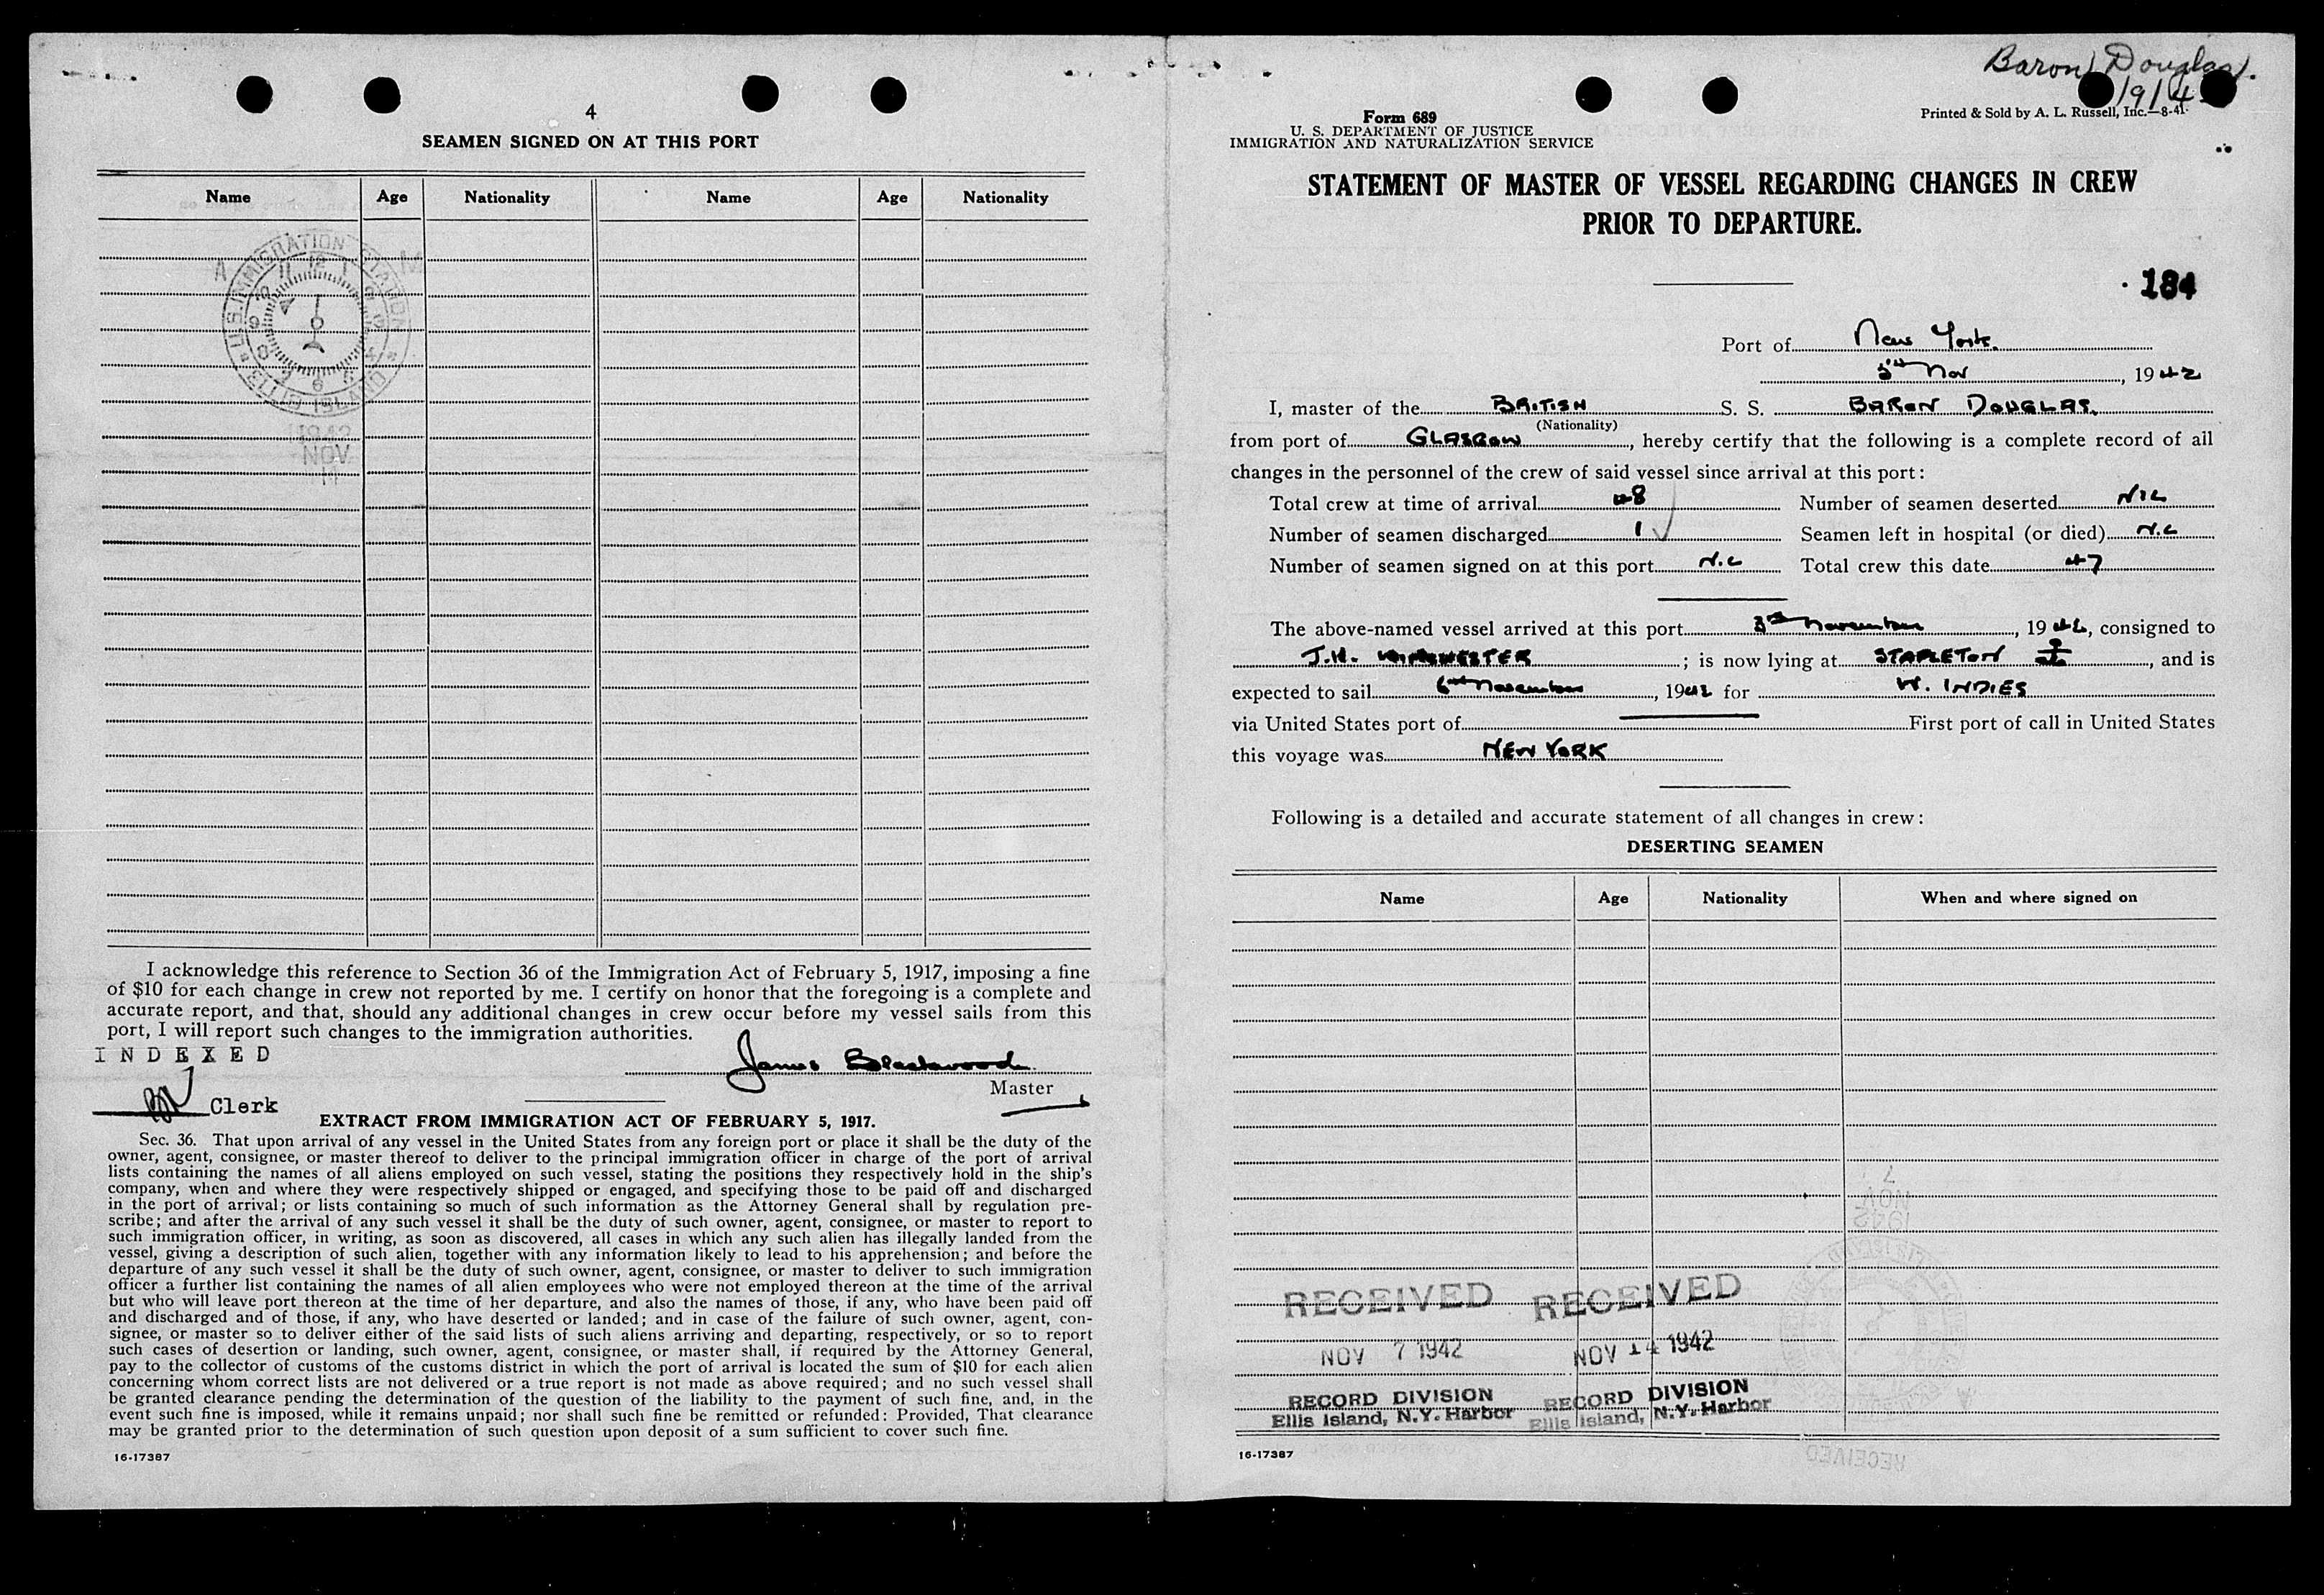 4
SEAMEN SIGNED ON AT THIS PORT
Name Age Nationality Name Age Nationality
A M
U.S. IMMIGRATION STATION
ELLIS ISLAND
1942
NOV
14
I acknowledge this reference to Section 36 of the Immigration Act of February 5, 1917, imposing a fine
of $10 for each change in crew not reported by me. I certify on honor that the foregoing is a complete and
accurate report, and that, should any additional changes in crew occur before my vessel sails from this
port, I will report such changes to the immigration authorities.
INDEXED
James Blackwood
Master
Clerk
EXTRACT FROM IMMIGRATION ACT OF FEBRUARY 5, 1917.
Sec. 36. That upon arrival of any vessel in the United States from any foreign port or place it shall be the duty of the
owner, agent, consignee, or master thereof to deliver to the principal immigration officer in charge of the port of arrival
lists containing the names of all aliens employed on such vessel, stating the positions they respectively hold in the ship's
company, when and where they were respectively shipped or engaged, and specifying those to be paid off and discharged
in the port of arrival; or lists containing so much of such information as the Attorney General shall by regulation pre-
scribe; and after the arrival of any such vessel it shall be the duty of such owner, agent, consignee, or master to report to
such immigration officer, in writing, as soon as discovered, all cases in which any such alien has illegally landed from the
vessel, giving a description of such alien, together with any information likely to lead to his apprehension; and before the
departure of any such vessel it shall be the duty of such owner, agent, consignee, or master to deliver to such immigration
officer a further list containing the names of all alien employees who were not employed thereon at the time of the arrival
but who will leave port thereon at the time of her departure, and also the names of those, if any, who have been paid off
and discharged and of those, if any, who have deserted or landed; and in case of the failure of such owner, agent, con-
signee, or master so to deliver either of the said lists of such aliens arriving and departing, respectively, or so to report
such cases of desertion or landing, such owner, agent, consignee, or master shall, if required by the Attorney General,
pay to the collector of customs of the customs district in which the port of arrival is located the sum of $10 for each alien
concerning whom correct lists are not delivered or a true report is not made as above required; and no such vessel shall
be granted clearance pending the determination of the question of the liability to the payment of such fine, and, in the
event such fine is imposed, while it remains unpaid; nor shall such fine be remitted or refunded: Provided, That clearance
may be granted prior to the determination of such question upon deposit of a sum sufficient to cover such fine.
16-17387
Baron Douglas.
Form 689
U. S. DEPARTMENT OF JUSTICE
IMMIGRATION AND NATURALIZATION SERVICE
Printed & Sold by A. L. Russell, Inc.—8-41
STATEMENT OF MASTER OF VESSEL REGARDING CHANGES IN CREW
PRIOR TO DEPARTURE.
184
Port of New York.
5th Nov, 1942
I, master of the BRITISH S. S. BARON DOUGLAS.
(Nationality)
from port of GLASGOW, hereby certify that the following is a complete record of all
changes in the personnel of the crew of said vessel since arrival at this port:
Total crew at time of arrival 48 Number of seamen deserted NIL
Number of seamen discharged 1 Seamen left in hospital (or died) NIL
Number of seamen signed on at this port NIL Total crew this date 47
The above-named vessel arrived at this port 3rd November, 1942, consigned to
J.H. WINCHESTER; is now lying at STAPLETON, and is
expected to sail 6th November, 1942 for W. INDIES
via United States port of First port of call in United States
this voyage was NEW YORK
Following is a detailed and accurate statement of all changes in crew:
DESERTING SEAMEN
Name Age Nationality When and where signed on
RECEIVED RECEIVED
NOV 7 1942 NOV 14 1942
RECORD DIVISION RECORD DIVISION
Ellis Island, N.Y. Harbor Ellis Island, N.Y. Harbor
16-17387